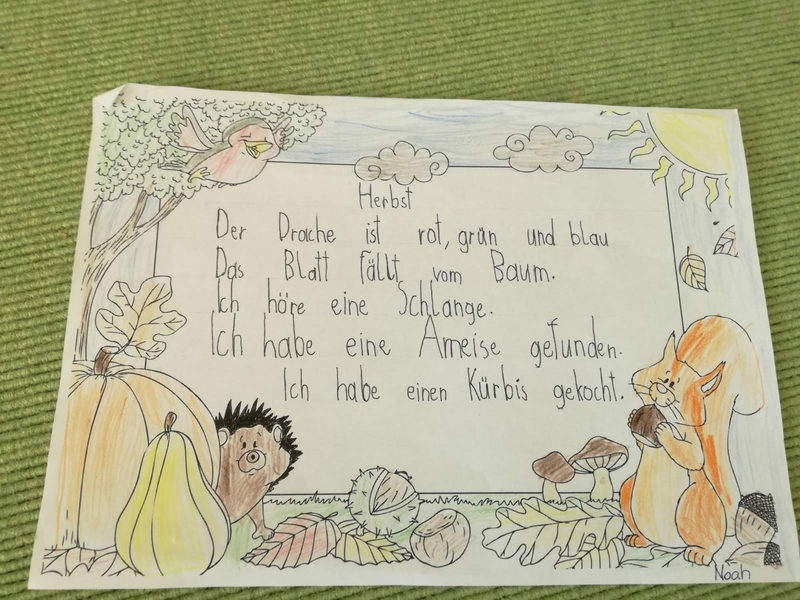 Herbst
Der Drache ist rot, grün und blau
Das Blatt fällt vom Baum.
Ich höre eine Schlange.
Ich habe eine Ameise gefunden.
Ich habe einen Kürbis gekocht.
Noah